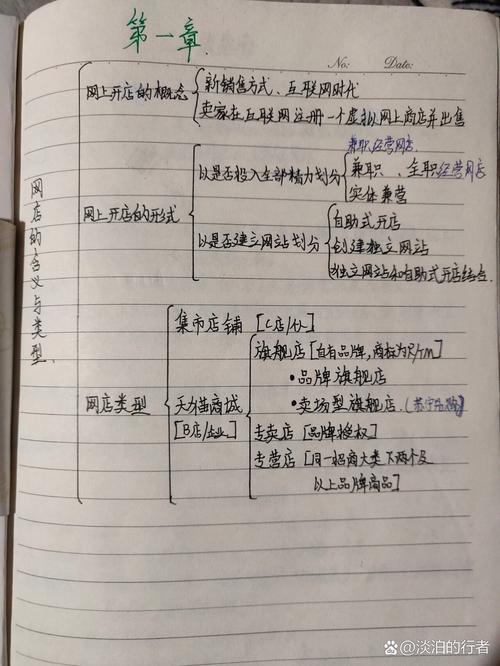 第一章
No:
Date:
网店的含义与类型
网上开店的概念
新销售方式、互联网时代
卖家在互联网注册一个虚拟网上商店并出售
网上开店的形式
以是否投入全部精力划分
兼职经营网店
兼职、全职经营网店
实体兼营
以是否建立网站划分
自助式开店
创建独立网站
独立网站和自助式开店结合
网店类型
集市店铺 [C店/个人]
天猫商城
[B店/企业]
旗舰店 [自有品牌,商标为R/TM]
·品牌旗舰店
·卖场型旗舰店
专卖店 [品牌授权]
专营店 [同一招商大类下两个及
以上品牌商品]
淡泊的行者